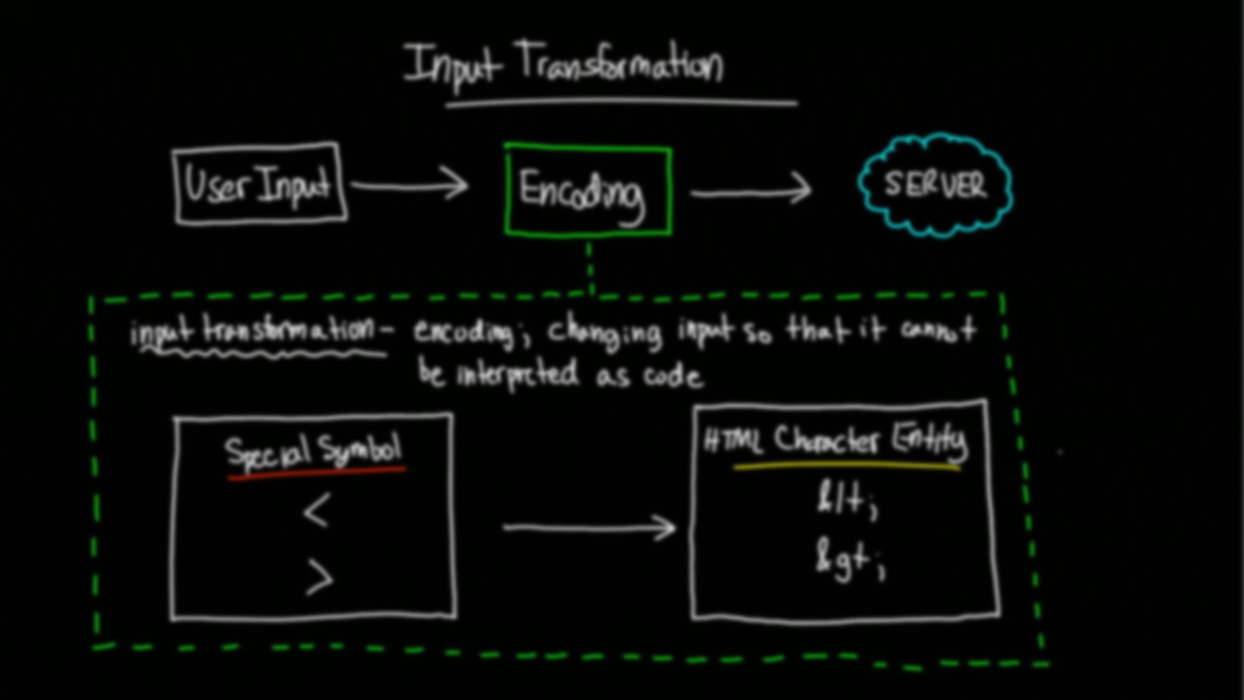 Input Transformation
User Input
Encoding
SERVER
input transformation - encoding; changing input so that it cannot
be interpreted as code
Special Symbol
<
>
HTML Character Entity
&lt;
&gt;